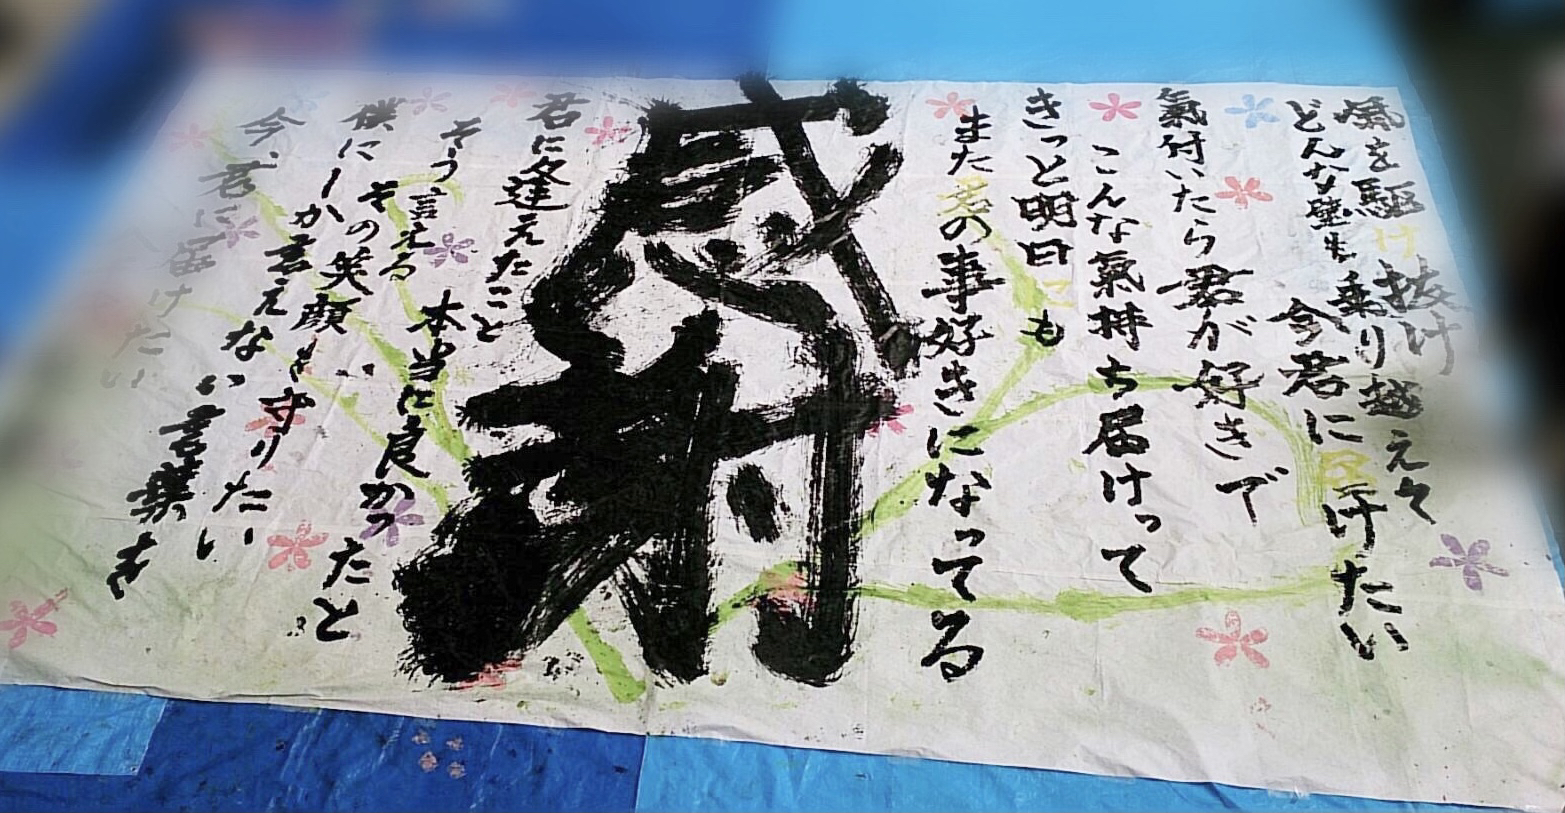 風を駆け抜け
どんな壁も乗り越えて
今君に届けたい
氣付いたら君が好きで
こんな氣持ち届けって
きっと明日にも
また君の事好きになってる
感謝
君に逢えたこと
そう言える
本当に良かったと
その笑顔を守りたい
僕にしか言えない言葉を
今、君に届けたい